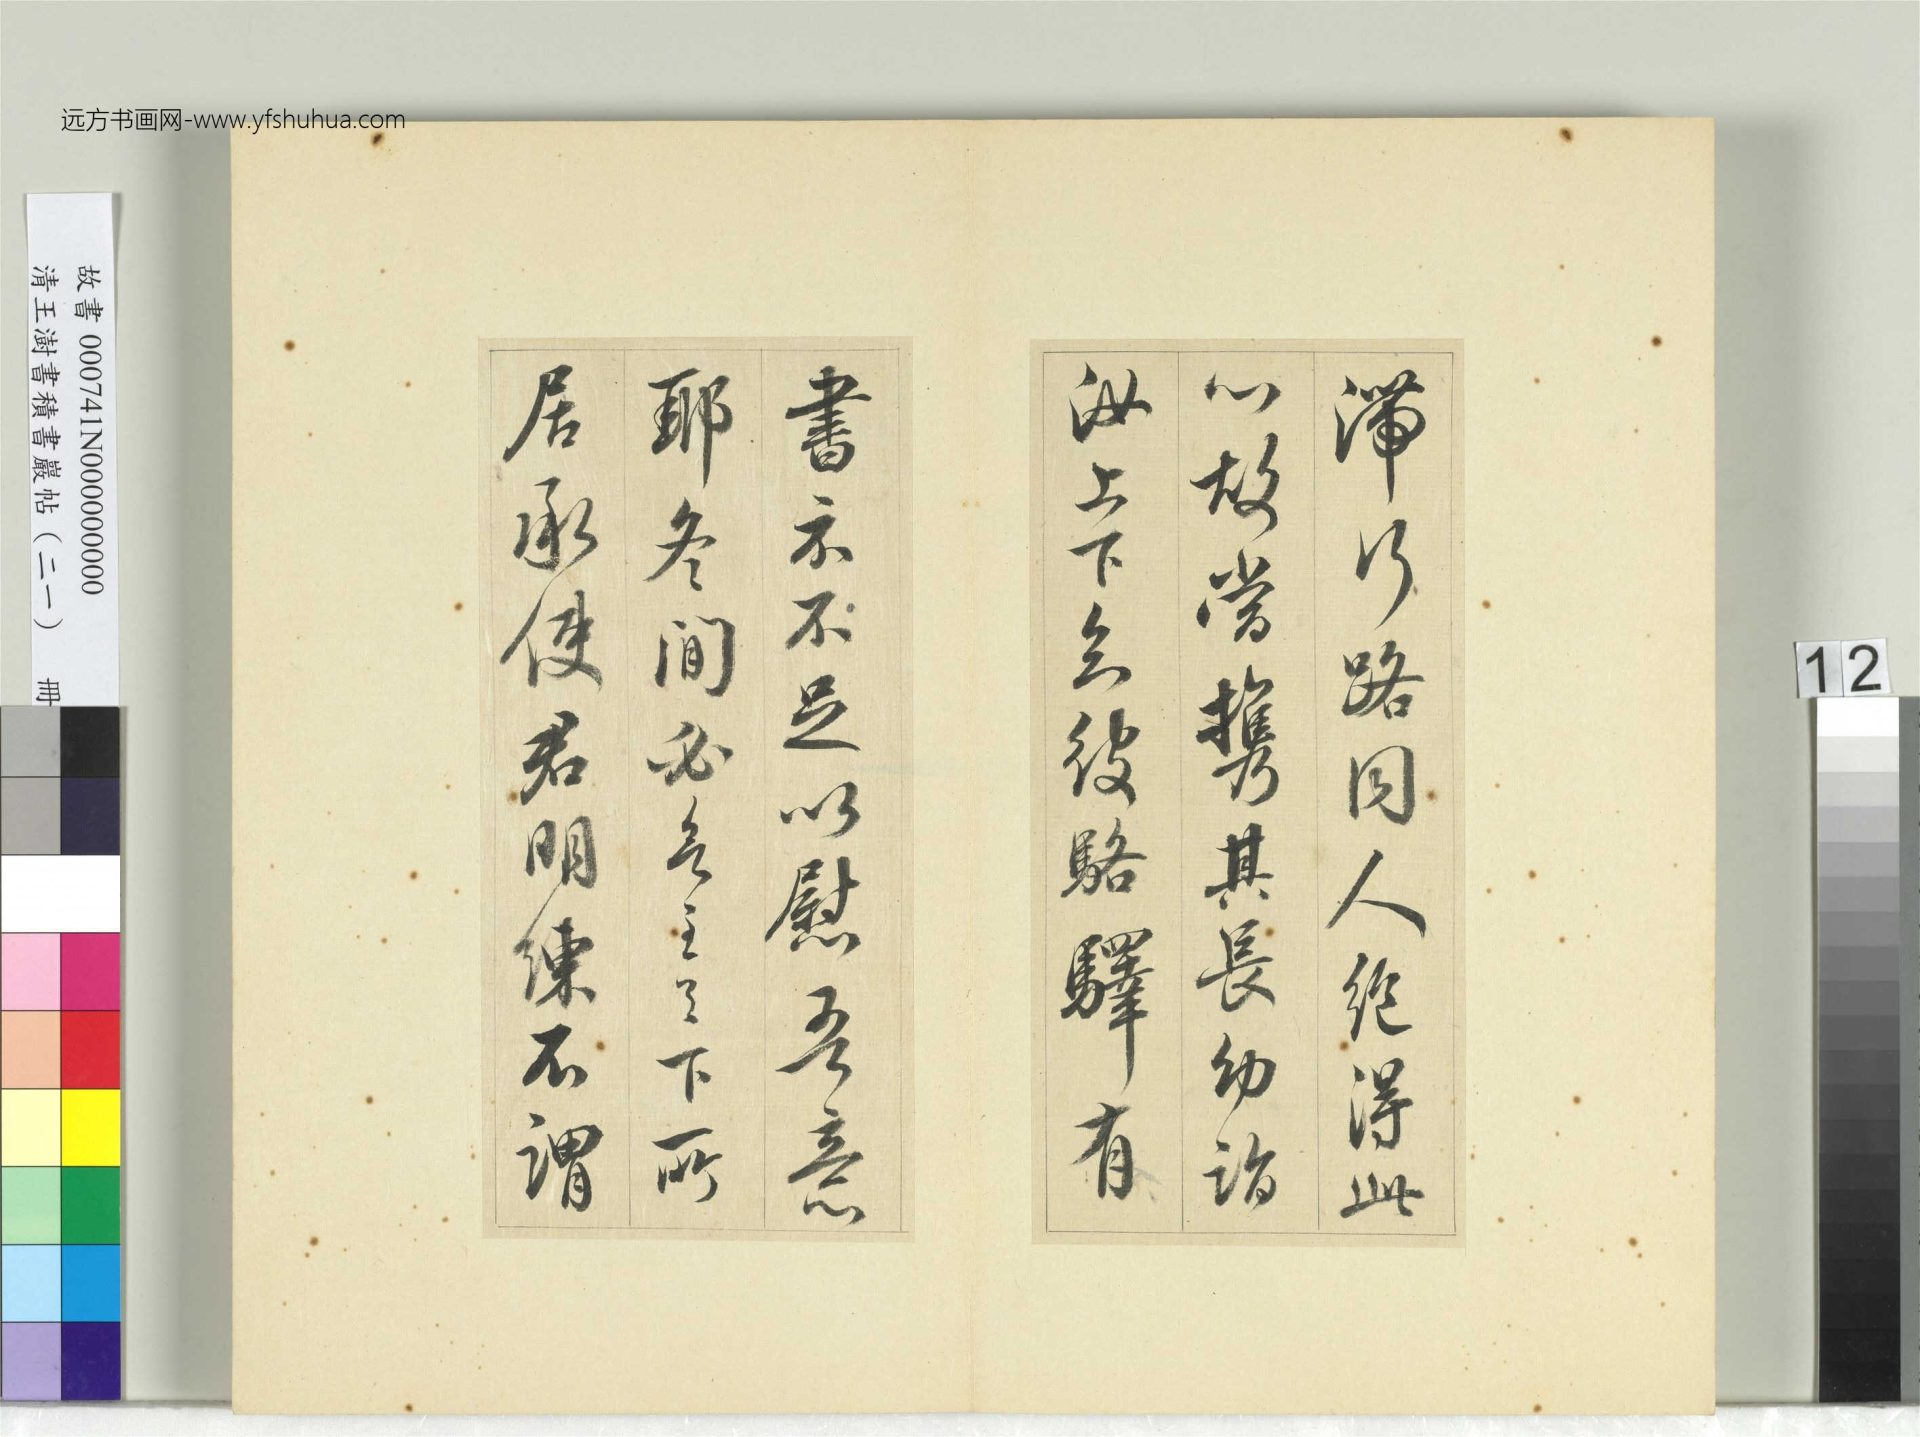 远方书画网-www.yfshuhua.com
故書 000741N000000000
清王澍書積書巖帖（二一） 冊
12
滞行路同人絶得此
心故當攜其長幼詣
汝上下去彼駱驛有
書示不足以慰吾意
耶冬間必無主之下所
居承使君明練不謂